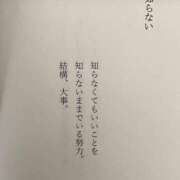 知らない
知らなくてもいいことを
知らないままでいる努力。
結構、大事。